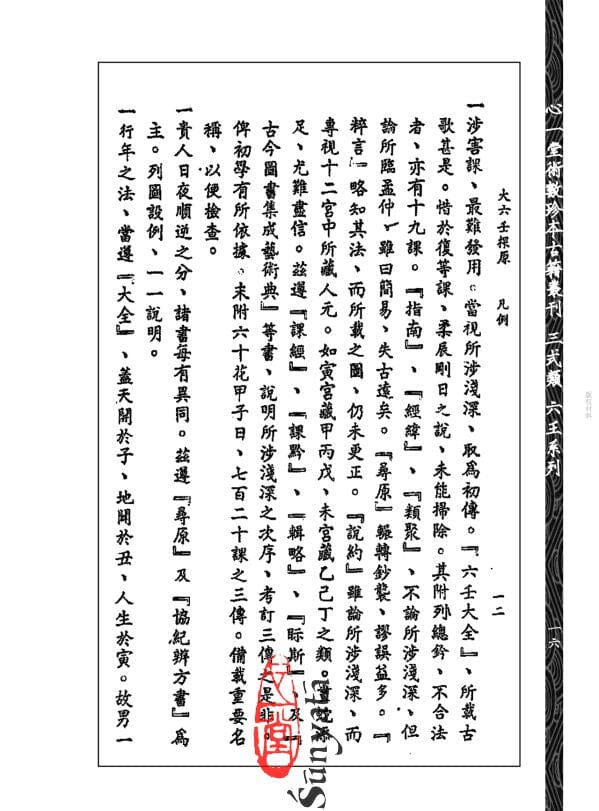 心一堂術數珍本古籍叢刊 三式類 六壬系列
一六
大六壬探原 凡例
一二
一涉害課、最難發用。當視所涉淺深、取爲初傳。『六壬大全』、所載古
歌甚是。惜於復等課、柔辰剛日之說、未能掃除。其附列總鈐、不合法
者、亦有十九課。『指南』、『經緯』、『類聚』、不論所涉淺深、但
論所臨孟仲、雖曰簡易、失古遠矣。『尋原』輾轉鈔襲、謬誤益多。『
粹言』略知其法、而所載之圖、仍未更正。『說約』雖論所涉淺深、而
專視十二宮中所藏人元。如寅宮藏甲丙戊、未宮藏乙己丁之類。
足、尤難盡信。茲遵『課經』、『課黔』、『輯略』、『眎斯』、及『
古今圖書集成藝術典』等書、說明所涉淺深之次序、考訂三傳之是非。
俾初學有所依據。末附六十花甲子日、七百二十課之三傳。備載重要名
稱、以便檢查。
一貴人日夜順逆之分、諸書每有異同。茲遵『尋原』及『協紀辨方書』爲
主。列圖設例、一一說明。
一行年之法、當遵『大全』、蓋天開於子、地闢於丑、人生於寅。故男一
心一堂
Śūnyatā
版权材料